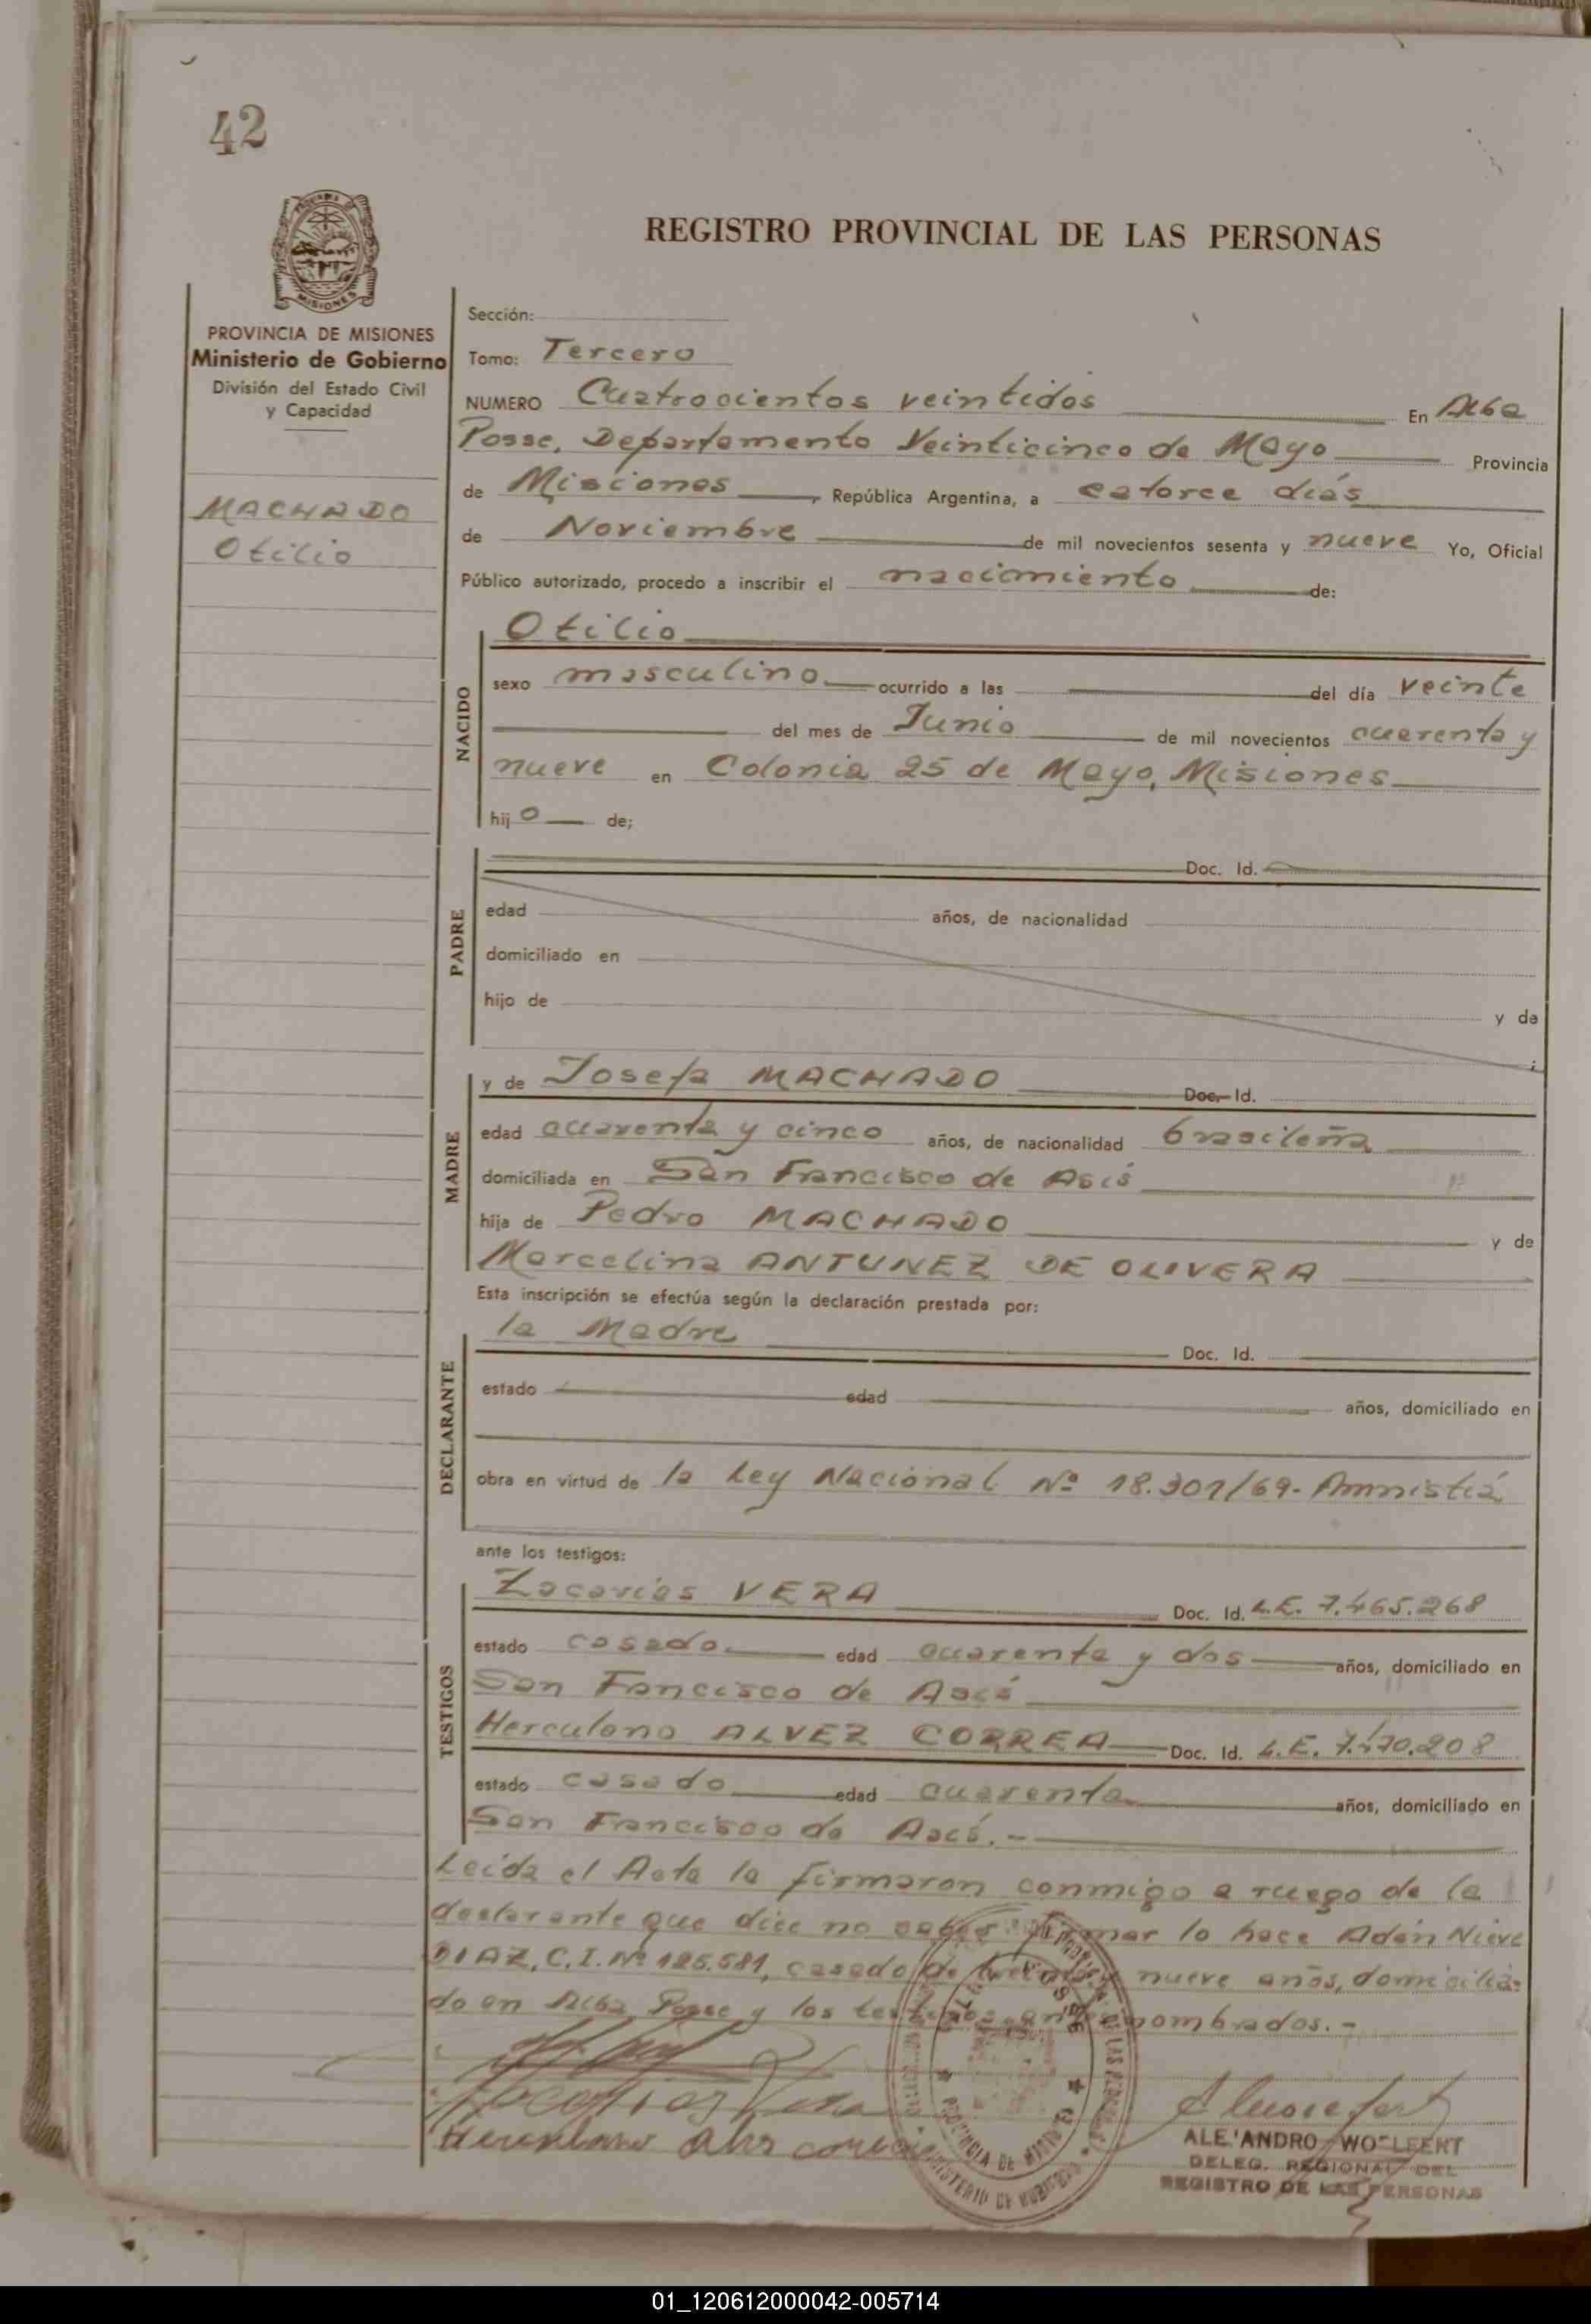 42
REGISTRO PROVINCIAL DE LAS PERSONAS
MISIONES
PROVINCIA DE MISIONES
Ministerio de Gobierno
División del Estado Civil
y Capacidad
MACHADO
Otilio
Sección:
Tomo: Tercero
NUMERO Cuatrocientos veintidós En Alba
Posse, Departamento Veinticinco de Mayo Provincia
de Misiones, República Argentina, a catorce diás
de Noviembre de mil novecientos sesenta y nueve Yo, Oficial
Público autorizado, procedo a inscribir el nacimiento de:
NACIDO
Otilio
sexo masculino ocurrido a las del día veinte
del mes de Junio de mil novecientos cuarenta y
nueve en Colonia 25 de Mayo, Misiones
hijo de;
PADRE
Doc. Id.
edad años, de nacionalidad
domiciliado en
hijo de y de
;
MADRE
y de Josefa MACHADO Doc. Id.
edad cuarenta y cinco años, de nacionalidad brasileña
domiciliada en San Francisco de Asís
hija de Pedro MACHADO y de
Marcelina ANTUNEZ DE OLIVERA
Esta inscripción se efectúa según la declaración prestada por:
DECLARANTE
la Madre Doc. Id.
estado edad años, domiciliado en
obra en virtud de la Ley Nacional Nº 18.301/69- Amnistiá
ante los testigos:
TESTIGOS
Zacarias VERA Doc. Id. L.E. 7.465.268
estado casado edad cuarenta y dos años, domiciliado en
San Fancisco de Asís
Herculano ALVEZ CORREA Doc. Id. L.E. 7.470.208
estado casado edad cuarenta años, domiciliado en
San Francisco de Asís.-
Leida el Acta la firmaron conmigo a ruego de la
declarante que dice no saber firmar lo hace Adán Nieve
DIAZ, C.I. Nº 125.581, casado de nueve años, domicilia-
do en Alba Posse y los testigos nombrados.-
Zacarias Vera
ALEJANDRO WOLFERT
DELEG. REGIONAL DEL
REGISTRO DE LAS PERSONAS
PROVINCIA DE MISIONES
MINISTERIO DE GOBIERNO
01_120612000042-005714